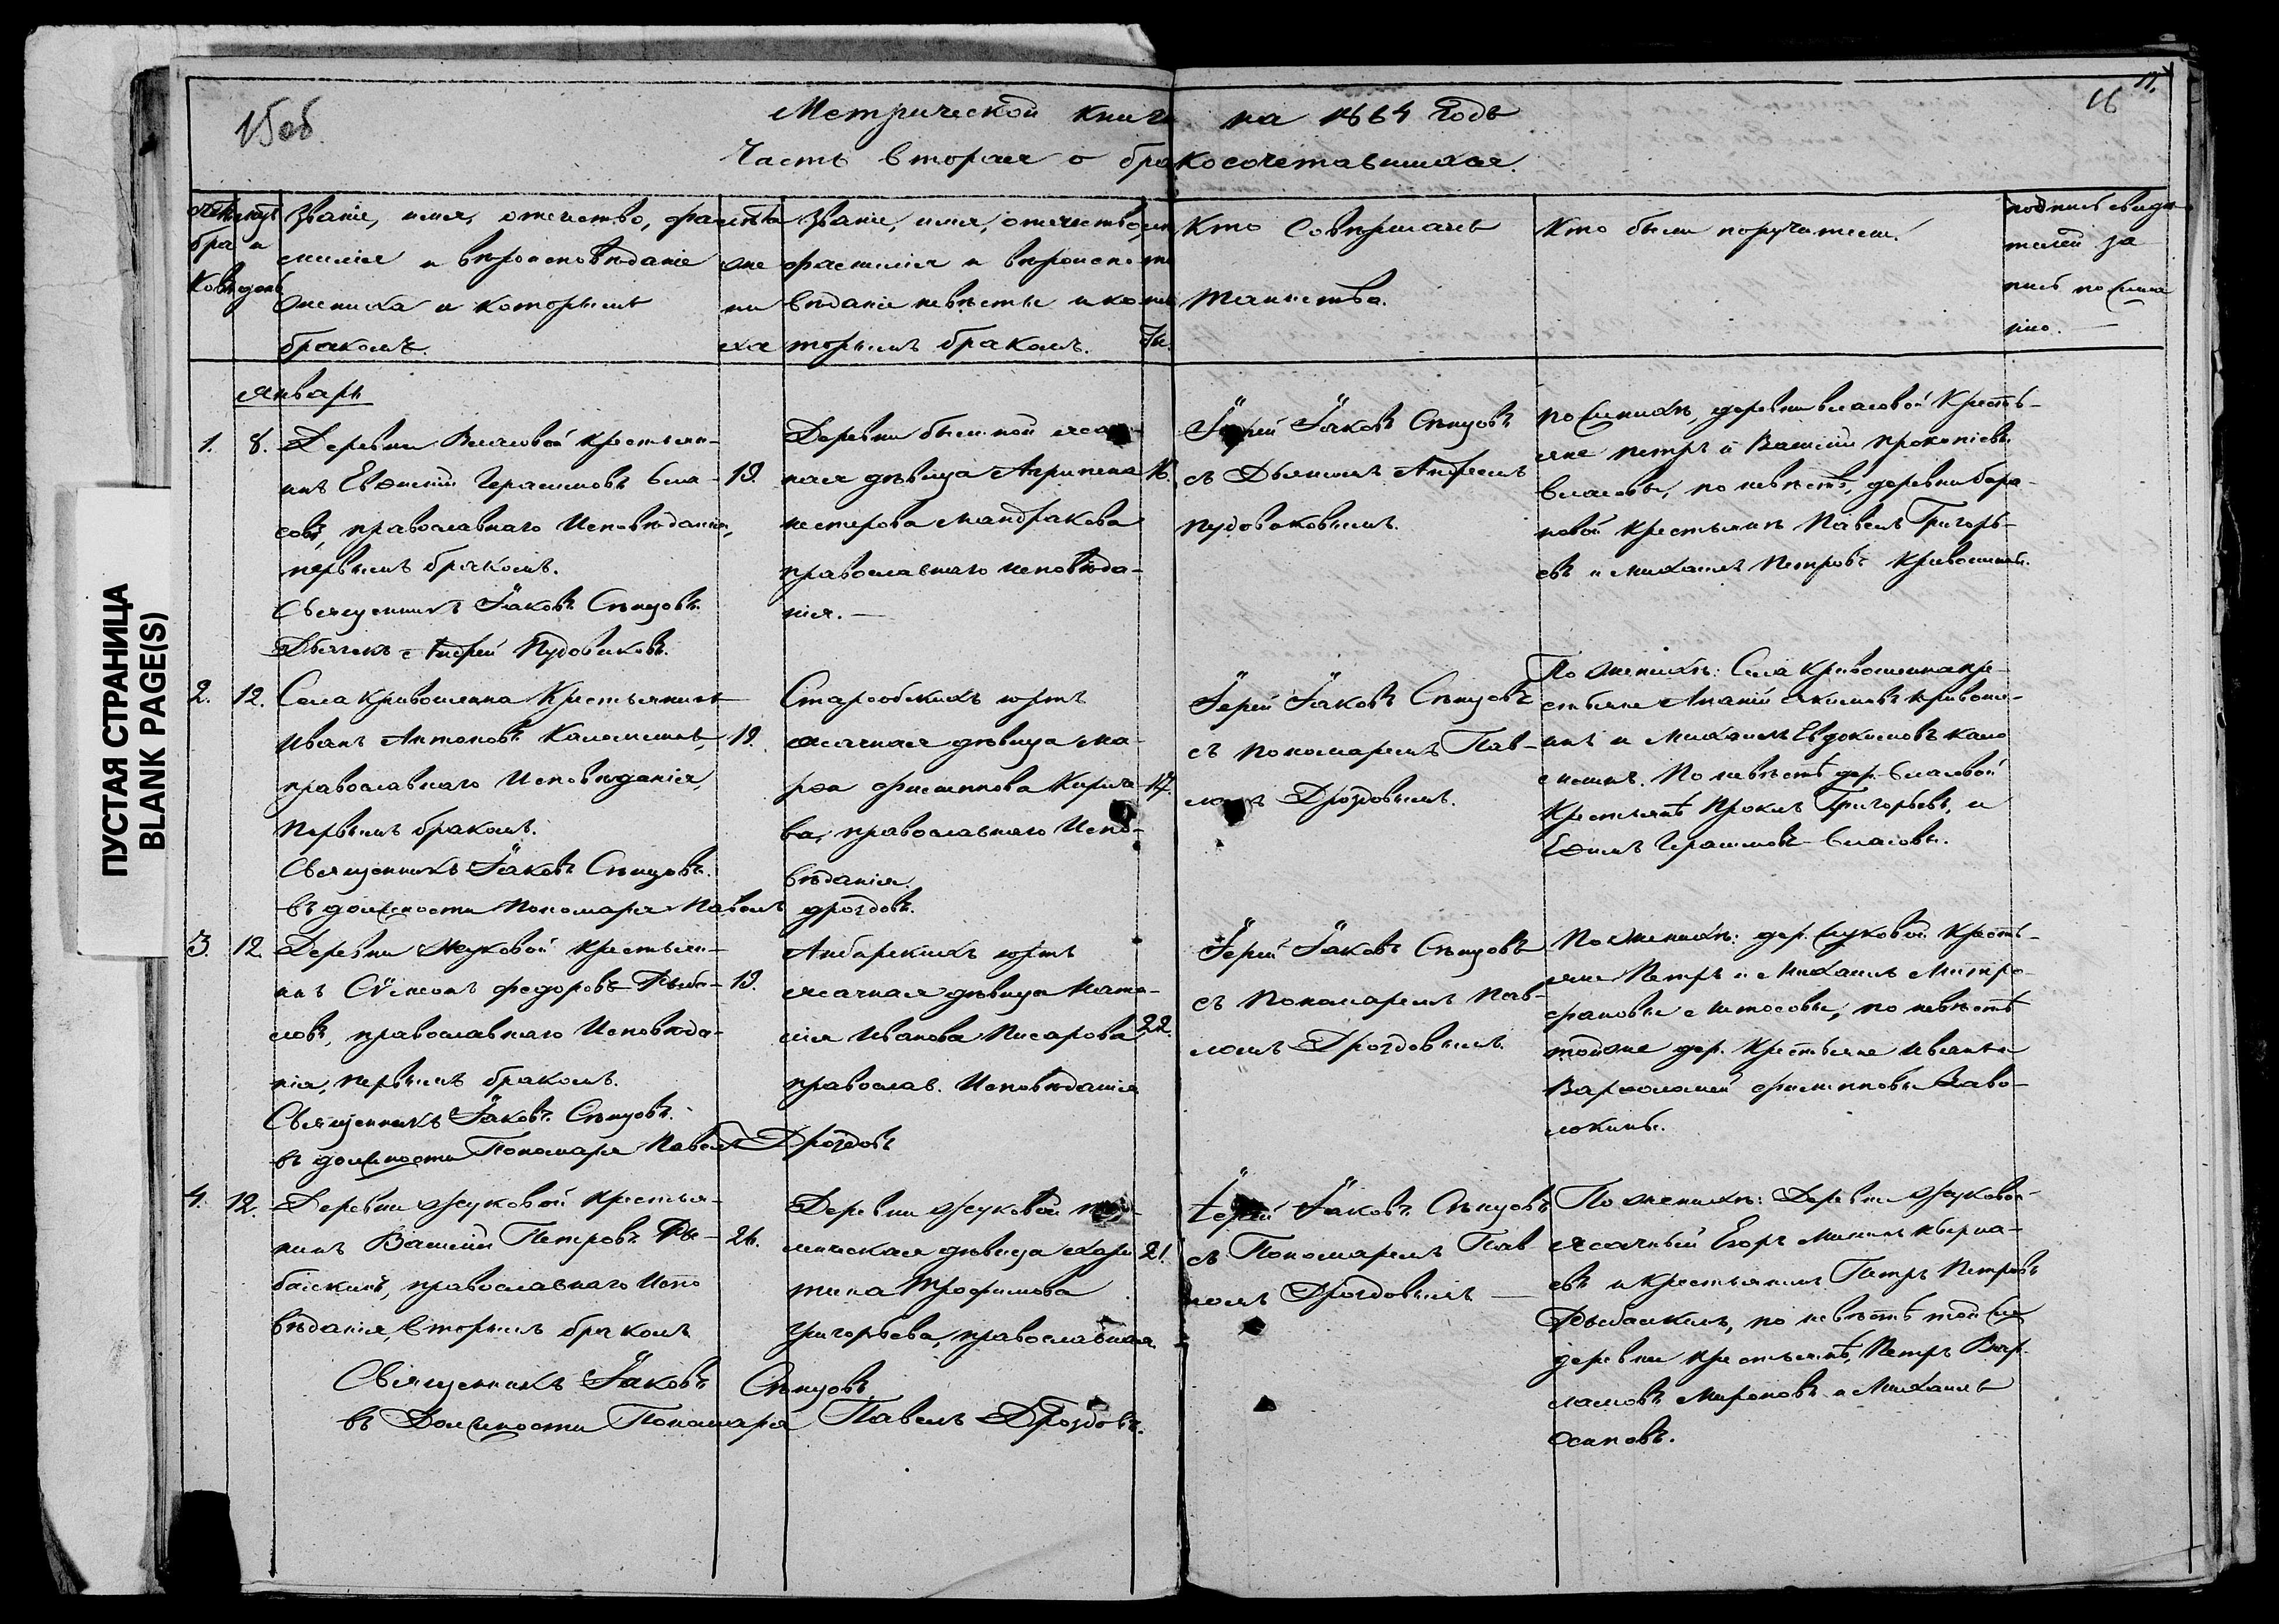 15 об.
16
Метрической книги на 1864 Годъ
Часть вторая о бракосочетавшихся.
Званіе, имя, отечество, фа-
милія и вѣроисповѣданіе
жениха и которымъ
бракомъ.
лѣта
же
ни
ха
Званіе, имя, отечество,
фамилія и вѣроиспо-
вѣданіе невѣсты и ко-
торымъ бракомъ.
Кто Совершалъ
таинство.
Кто были поручители.
подпись свидѣ-
телей за
пись по жела
нію.
Январь
1. 8. Деревни Власовой крестьян-
инъ Евѳимій Герасимовъ Вла-
совъ, православнаго Исповѣданія,
первымъ бракомъ.
Священникъ Іаковъ Слѣпцовъ.
Дьячекъ Андрей Пудовиковъ.
19.
ная дѣвица Агрипена
нестерова Мандракова
православнаго исповѣда-
нія. —
16.
Іерей Іаковъ Слѣпцовъ
съ Дьячкомъ Андреемъ
Пудовиковымъ.
по женихѣ, деревни власовой Кресть-
яне петръ и Василій прокопіевы
власовы, по невѣстѣ, деревни Бара-
новой крестьянинъ Павелъ Григорь-
евъ и Михаилъ Петровъ
2. 12. Села Кривошеина Крестьянинъ
Иванъ Антоновъ
православнаго Исповѣданія,
Первымъ бракомъ.
Священникъ Іаковъ Слѣпцовъ.
въ должности Пономаря Павелъ Дроздовъ.
19.
юртъ
ясачная дѣвица Ма-
рѳа Филиппова
ва, православнаго Испо-
вѣданія.
17.
Іерей Іаковъ Слѣпцовъ
съ пономаремъ Пав-
ломъ Дроздовымъ.
По женихѣ: Села Кривошеина кре-
стьяне Ананій Якимовъ Кривоше-
инъ и Михаилъ Евдокимовъ
По невѣстѣ дер. Власовой
Крестьянѣ Прокопъ Григорьевъ, и
Еѳимъ Герасимовъ Власовы.
3. 12. Деревни Жуковой крестьян-
инъ Сѵмеонъ Федоровъ
православнаго Исповѣда-
нія, первымъ бракомъ.
Священникъ Іаковъ Слѣпцовъ.
въ должности Пономаря Павелъ Дроздовъ
19.
Амбарскихъ юртъ
ясачная дѣвица Ната-
лія Иванова Писарова
православ. Исповѣданія
22.
Іерей Іаковъ Слѣпцовъ
съ пономаремъ Пав-
ломъ Дроздовымъ.
По женихѣ: дер. Жуковой кресть-
яне Петръ и Михаилъ Митро-
фановы по невѣстѣ
той же дер. Крестьяне Иванъ и
Варѳоломей Филипповы Заво-
локины.
4. 12. Деревни Жуковой крестья-
нинъ Василій Петровъ Ры-
православнаго Испо
вѣданія, вторымъ бракомъ
Священникъ Іаковъ Слѣпцовъ
въ Должности Пономаря Павелъ Дроздовъ.
26.
Деревни Жуковой
дѣвица Хари
тина Трофимова
Григорьева, православная
21.
Іерей Іаковъ Слѣпцовъ
съ Пономаремъ Пав
ломъ Дроздовымъ —
По женихѣ: Деревни Жуковой
ясачный Егоръ Мининъ
евъ и крестьянинъ Петръ Петровъ
по невѣстѣ той же
деревни крестьянѣ, Петръ Вар-
ламовъ Мироновъ и Михаилъ
Осиповъ.
ПУСТАЯ СТРАНИЦА
BLANK PAGE(S)